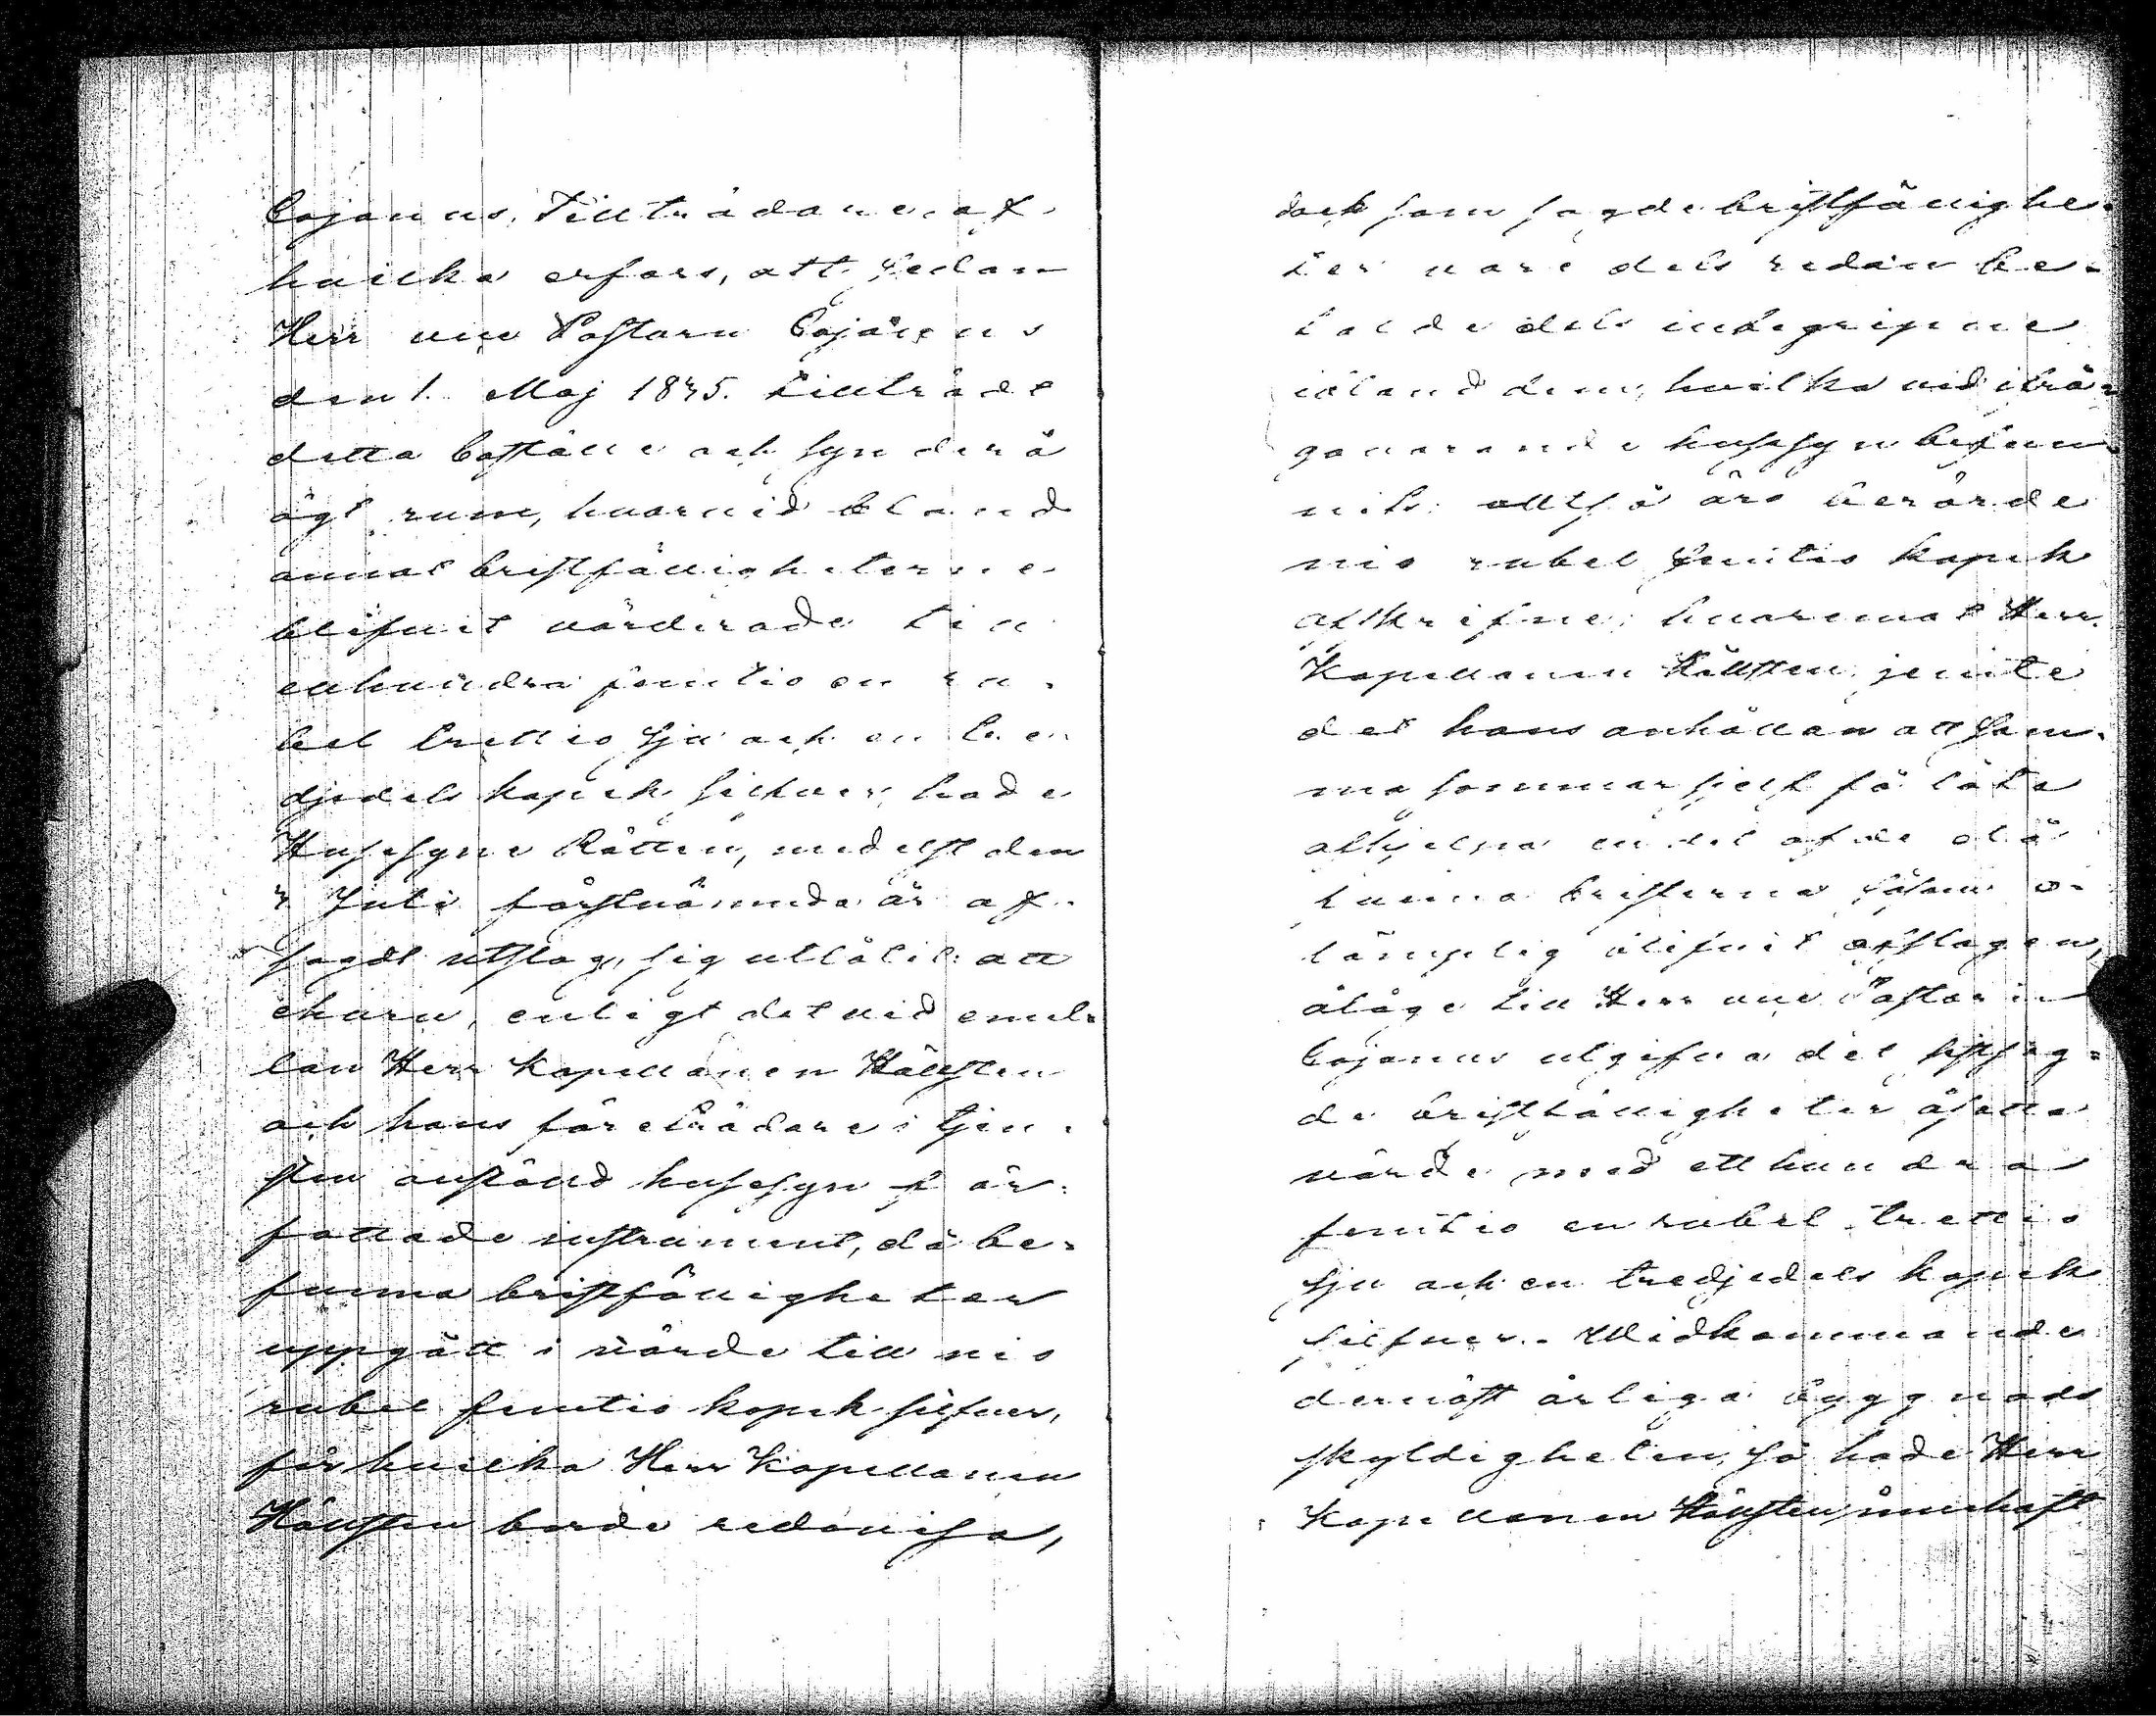 Cajanus, Tillträdane, af
hvilka erfors, att sedan
Herr vice Pastorn Cajanus
den 1. Maj 1845. tillträdt
detta boställe och syn derå
ägt rum, hvarvid bland
annat bristfälligheterne
blifvit värderade till
etthundra femtio en ru-
bel trettio sju och en tre-
djedels kopek silfver, hade
Husesyne Rätten, medelst den
Juli förstnämnda år af-
sagdt utslag, sig utlåtit: att
ehuru, enligt det vid emel-
lan Herr Kapellanen Hällsten
och hans företrädare i tjen-
sten anstäld husesyn för-
fattade instrument, då be-
funna bristfälligheter
uppgått i värde till nio
rubel femtio kopek silfver,
för hvilka Herr Kapellanen
Hällsten borde redovisa,
dock som sagde bristfällighe-
ter vore dels redan be-
talde dels inbegripne
ibland dem, hvilka vid ifrå-
gavarande husesyn befun-
nits: alltså äro berörde
nio rubel femtio kopek
afskrifne; hvaremot Herr
Kapellanen Hällsten, jemte
det hans anhållan att sam-
ma sommar sjelf få låta
afhjelpa en del af de då
funna bristerna såsom o-
lämplig blifvit afslagen,
ålåge till Herr vice Pastorn
Cajanus utgifva det sistsag-
de bristfälligheter åsatta
värde med ett hundra
femtio en rubel trettio
sju och en tredjedels kopek
silfver. Widkommande
dernäst årliga byggnads
skyldigheten, så hade Herr
Kapellanen Hällsten innehaft